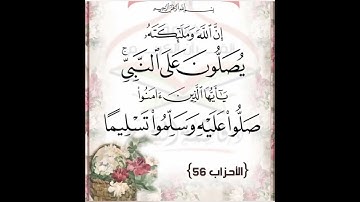 بسم الله الرحمن الرحيم
إِنَّ ٱللَّهَ وَمَلَٰٓئِكَتَهُۥ
يُصَلُّونَ عَلَى ٱلنَّبِيِّۚ
يَٰٓأَيُّهَا ٱلَّذِينَ ءَامَنُوا۟
صَلُّوا۟ عَلَيْهِ وَسَلِّمُوا۟ تَسْلِيمًا
{الأحزاب 56}